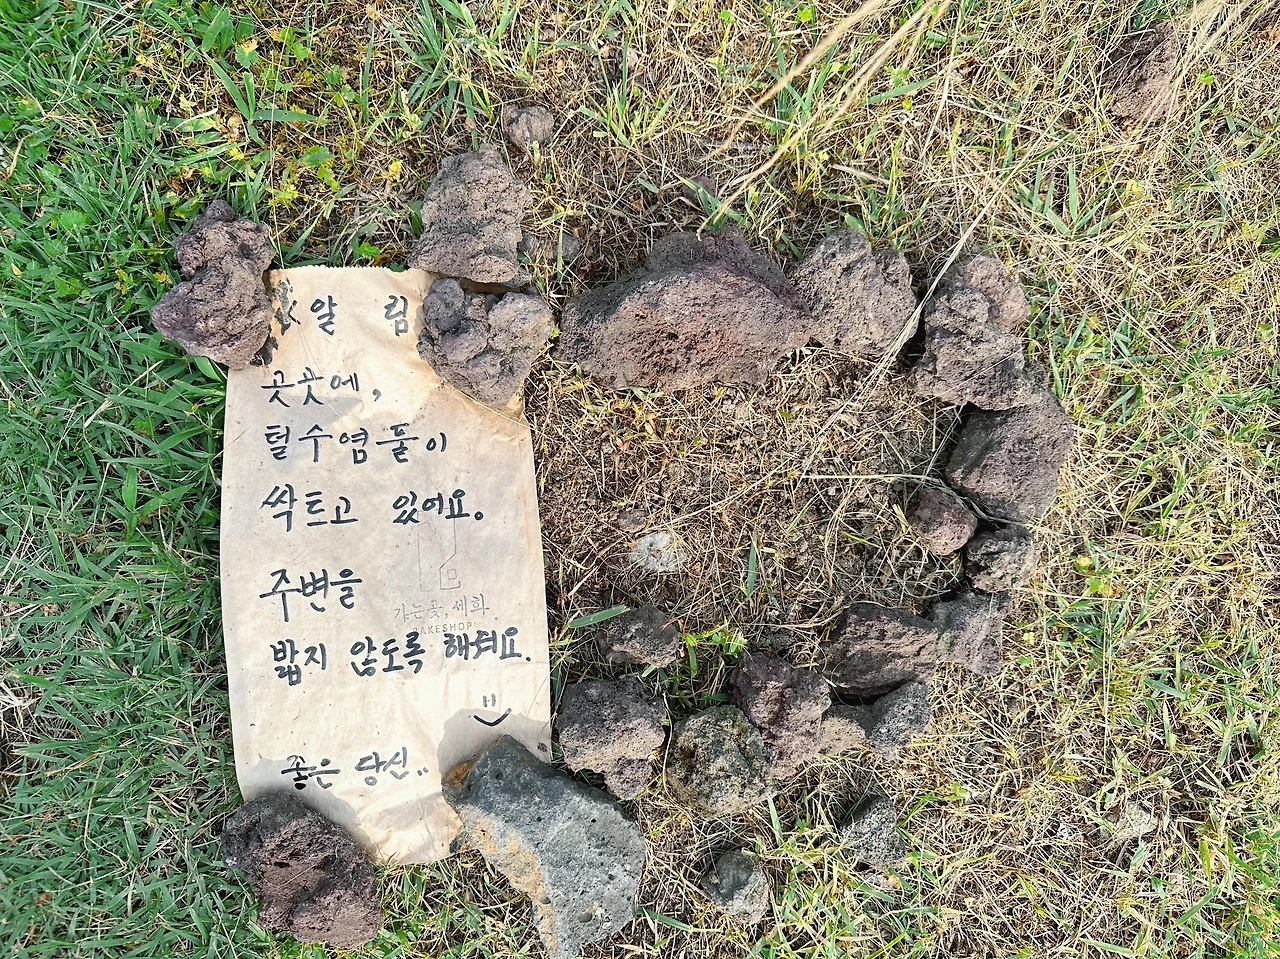 알 림
곳곳에,
털수염풀이
싹트고 있어요.
주변을
밟지 않도록 해줘요.
좋은 당신..
가는곳, 세화
BAKESHOP